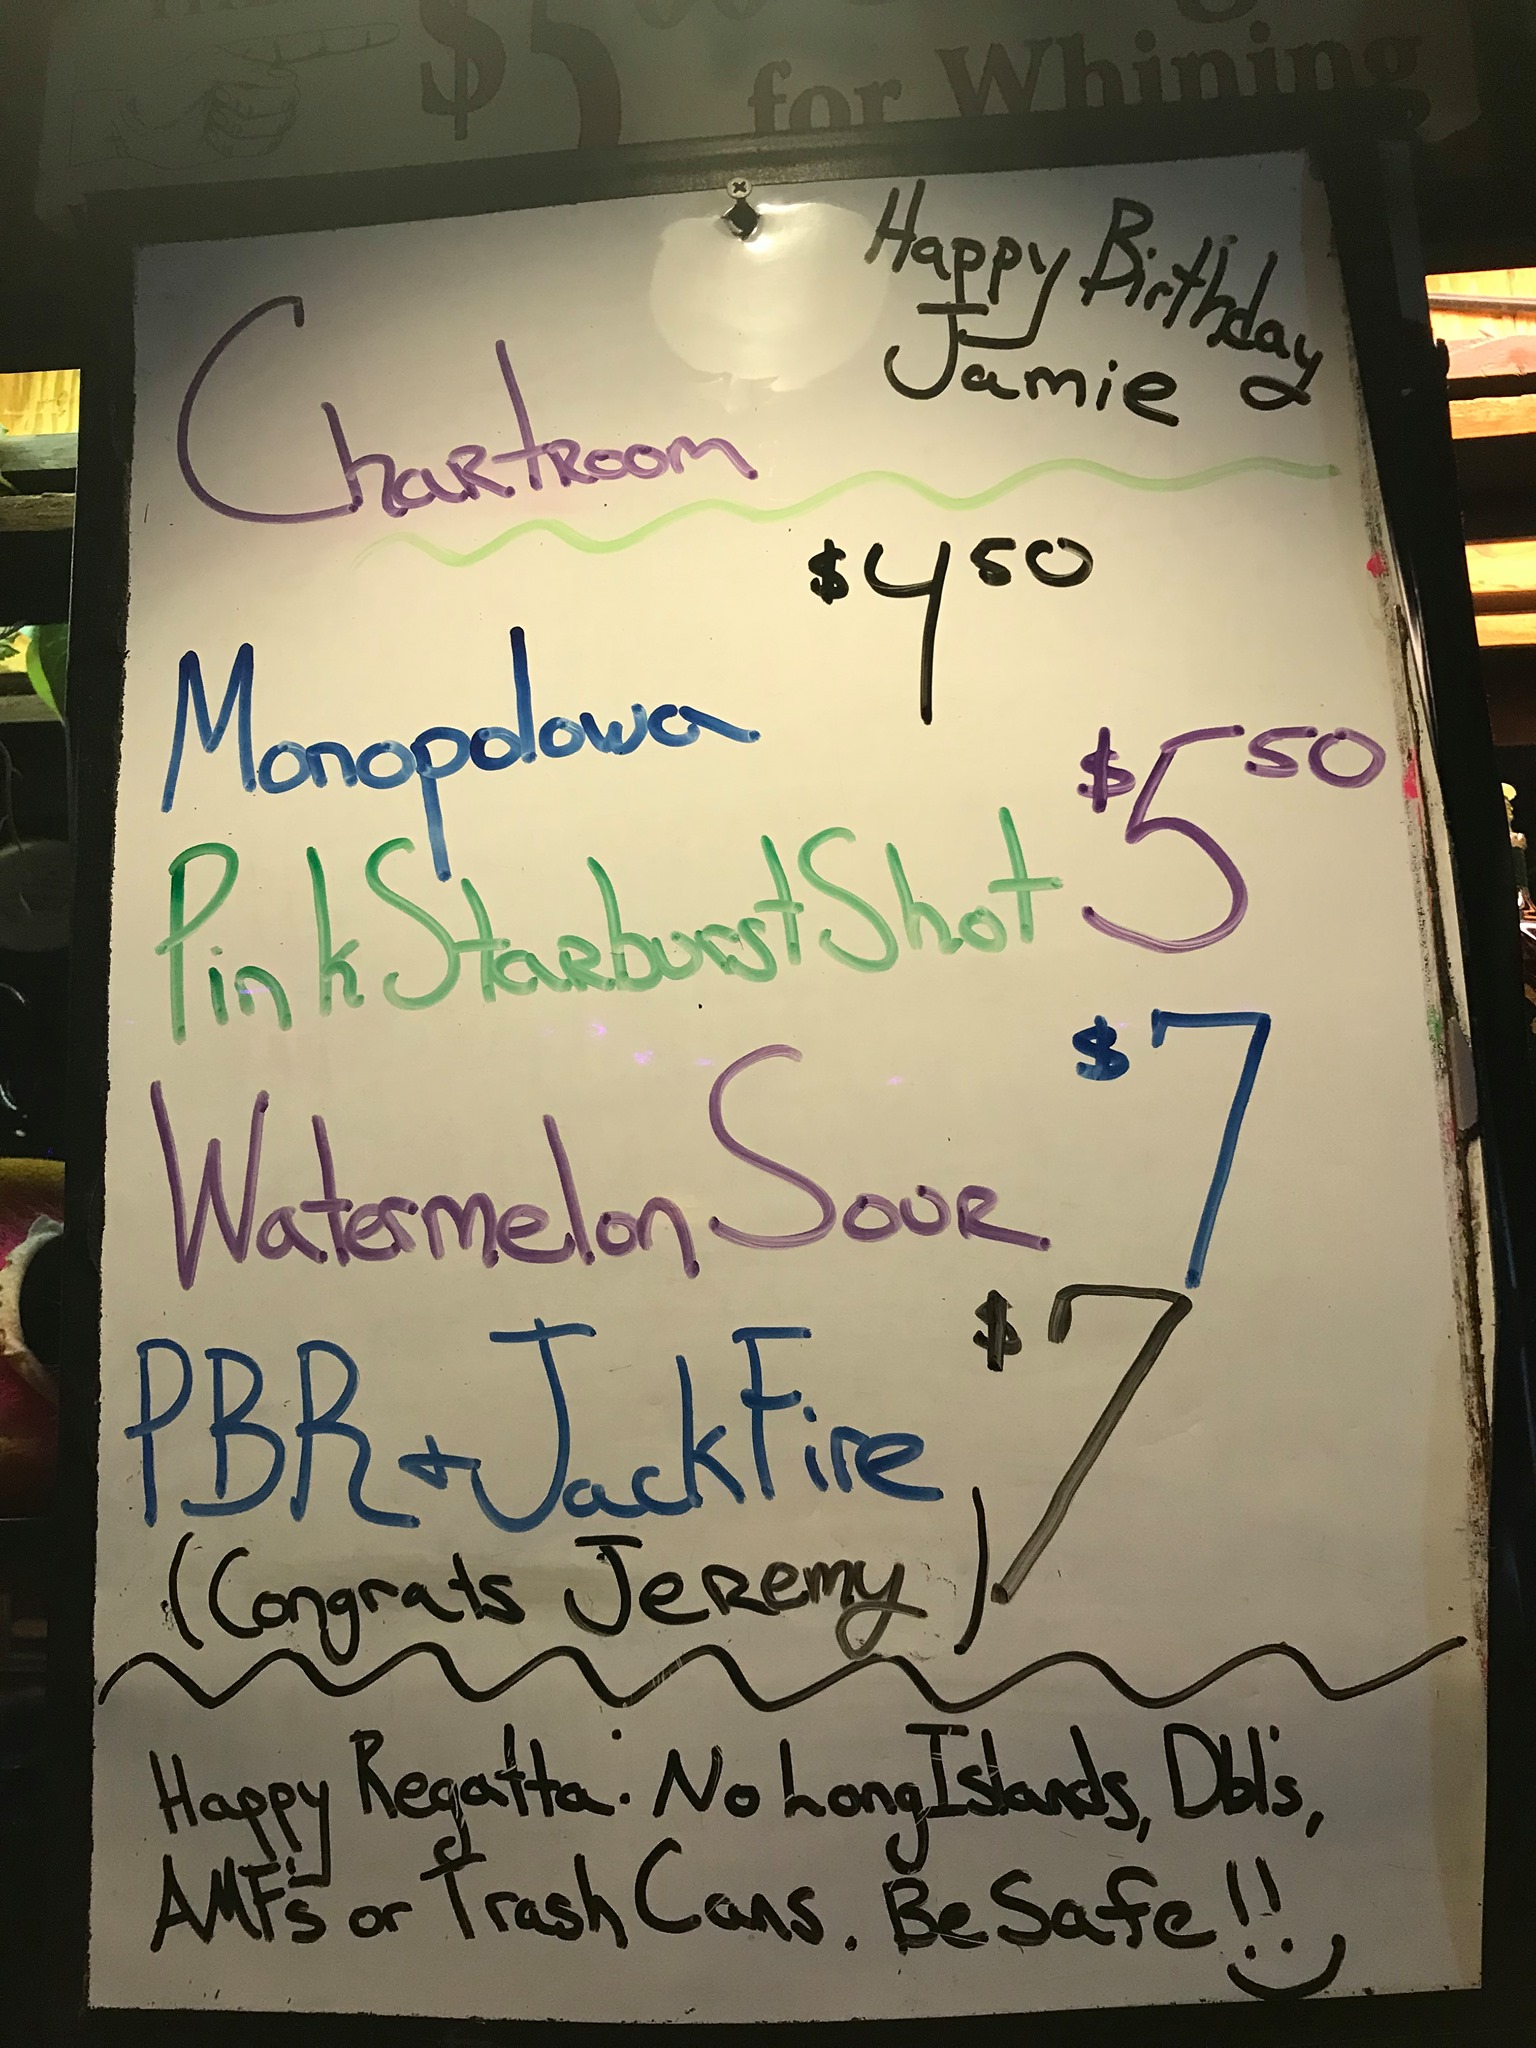 $5
for Whining
Happy Birthday
Jamie
Chartroom
$4 50
Monopolowa
$5 50
Pink Starburst Shot
$7
Watermelon Sour
$7
PBR + Jack Fire
(Congrats Jeremy)
Happy Regatta. No Long Islands, Dbl's,
AMF's or Trash Cans. Be Safe!!